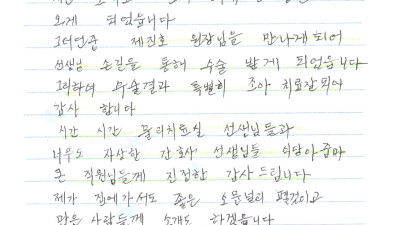 오게 되었읍니다
그러던중 제진호 원장님을 만나게되어
선생님 손길을 통해 수술 받게 되었읍니다
그리하여 수술결과 특별히 조아 치료잘되어
감사 합니다
시간 시간 물리치료실 선생님들과
너무도 자상한 간호사 선생님들 식당아줌마
모든 직원님들께 진심한 감사 드립니다
제가 집에가서도 좋은 소문널리 펼것이고
많은 사람들께 소개도 하겠읍니다